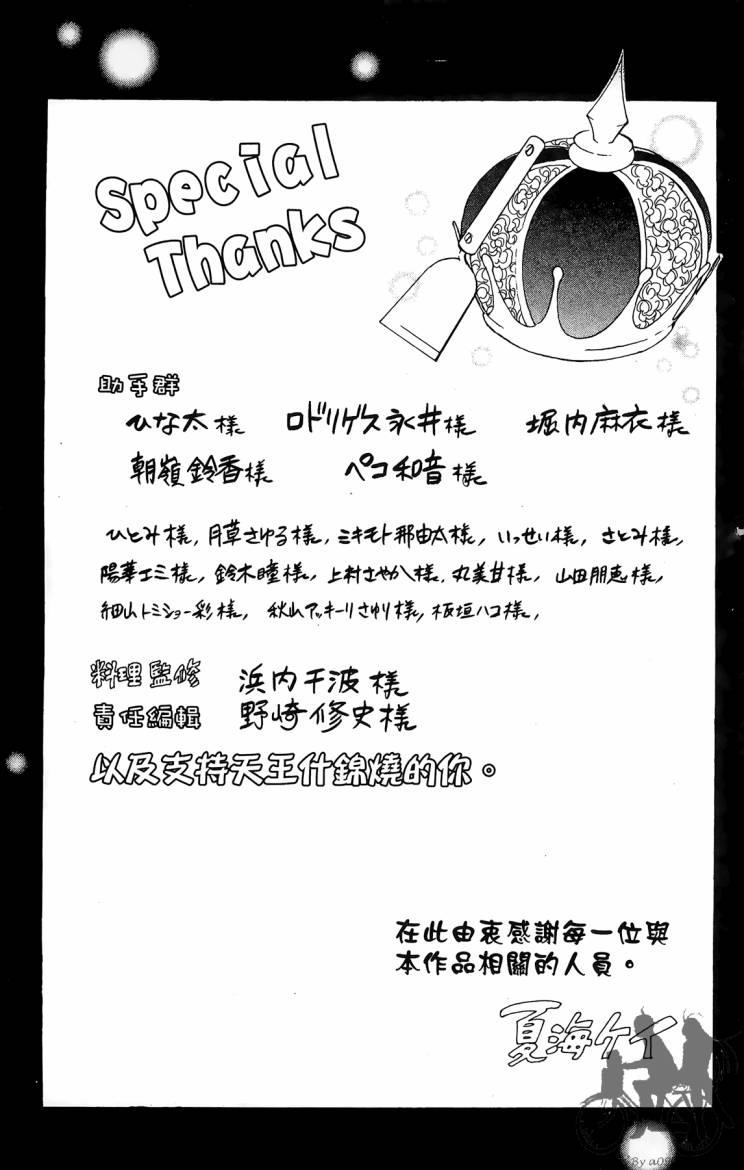 Special
Thanks
助手群
ひな太様 ロドリゲス永井様 堀内麻衣様
朝嶺鈴香様 ペコ和音様
ひとみ様, 月草さゆる様, ミキモト那由太様, いっせい様, さとみ様,
陽華エミ様, 鈴木瞳様, 上村さやか様, 丸美甘様, 山田朋恵様,
細山トミショー彩様, 秋山アッキーリさゆり様, 板垣ハコ様,
料理監修 浜内千波様
責任編輯 野崎修史様
以及支持天王什錦燒的你。
在此由衷感謝每一位與
本作品相關的人員。
夏海ケイ